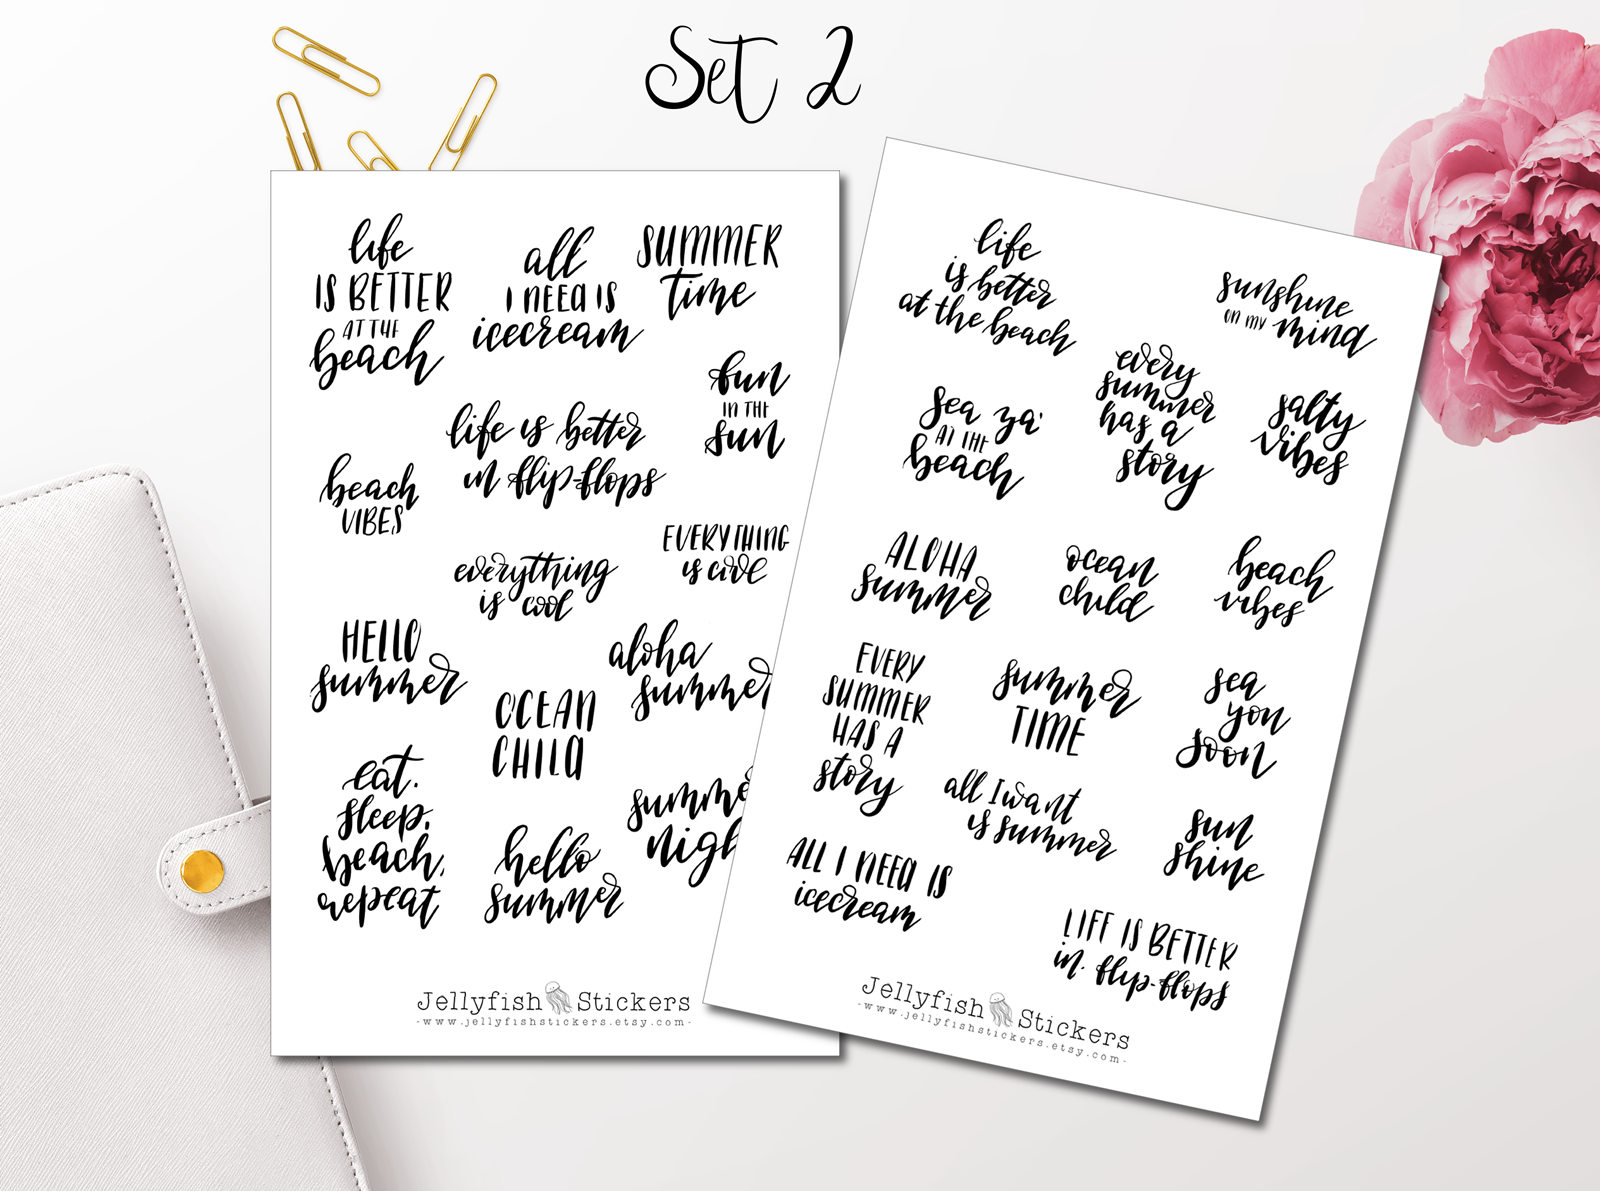 Set 2
life
IS BETTER
AT THE
beach
all
I NEED IS
icecream
SUMMER
time
fun
IN THE
sun
life is better
in flip-flops
beach
VIBES
EVERYTHING
is cool
everything
is cool
HELLO
summer
aloha
summer
OCEAN
CHILD
eat.
sleep.
beach.
repeat
summe
nigh
hello
summer
Jellyfish Stickers
-www.jellyfishstickers.etsy.com-
life
is better
at the beach
sunshine
on my mind
every
summer
has a
story
sea ya'
AT THE
beach
salty
vibes
ALOHA
summer
ocean
child
beach
vibes
EVERY
SUMMER
HAS A
story
summer
TIME
sea
you
soon
all I want
is summer
sun
shine
ALL I NEED IS
icecream
LIFE IS BETTER
in flip-flops
Jellyfish Stickers
-www.jellyfishstickers.etsy.com-